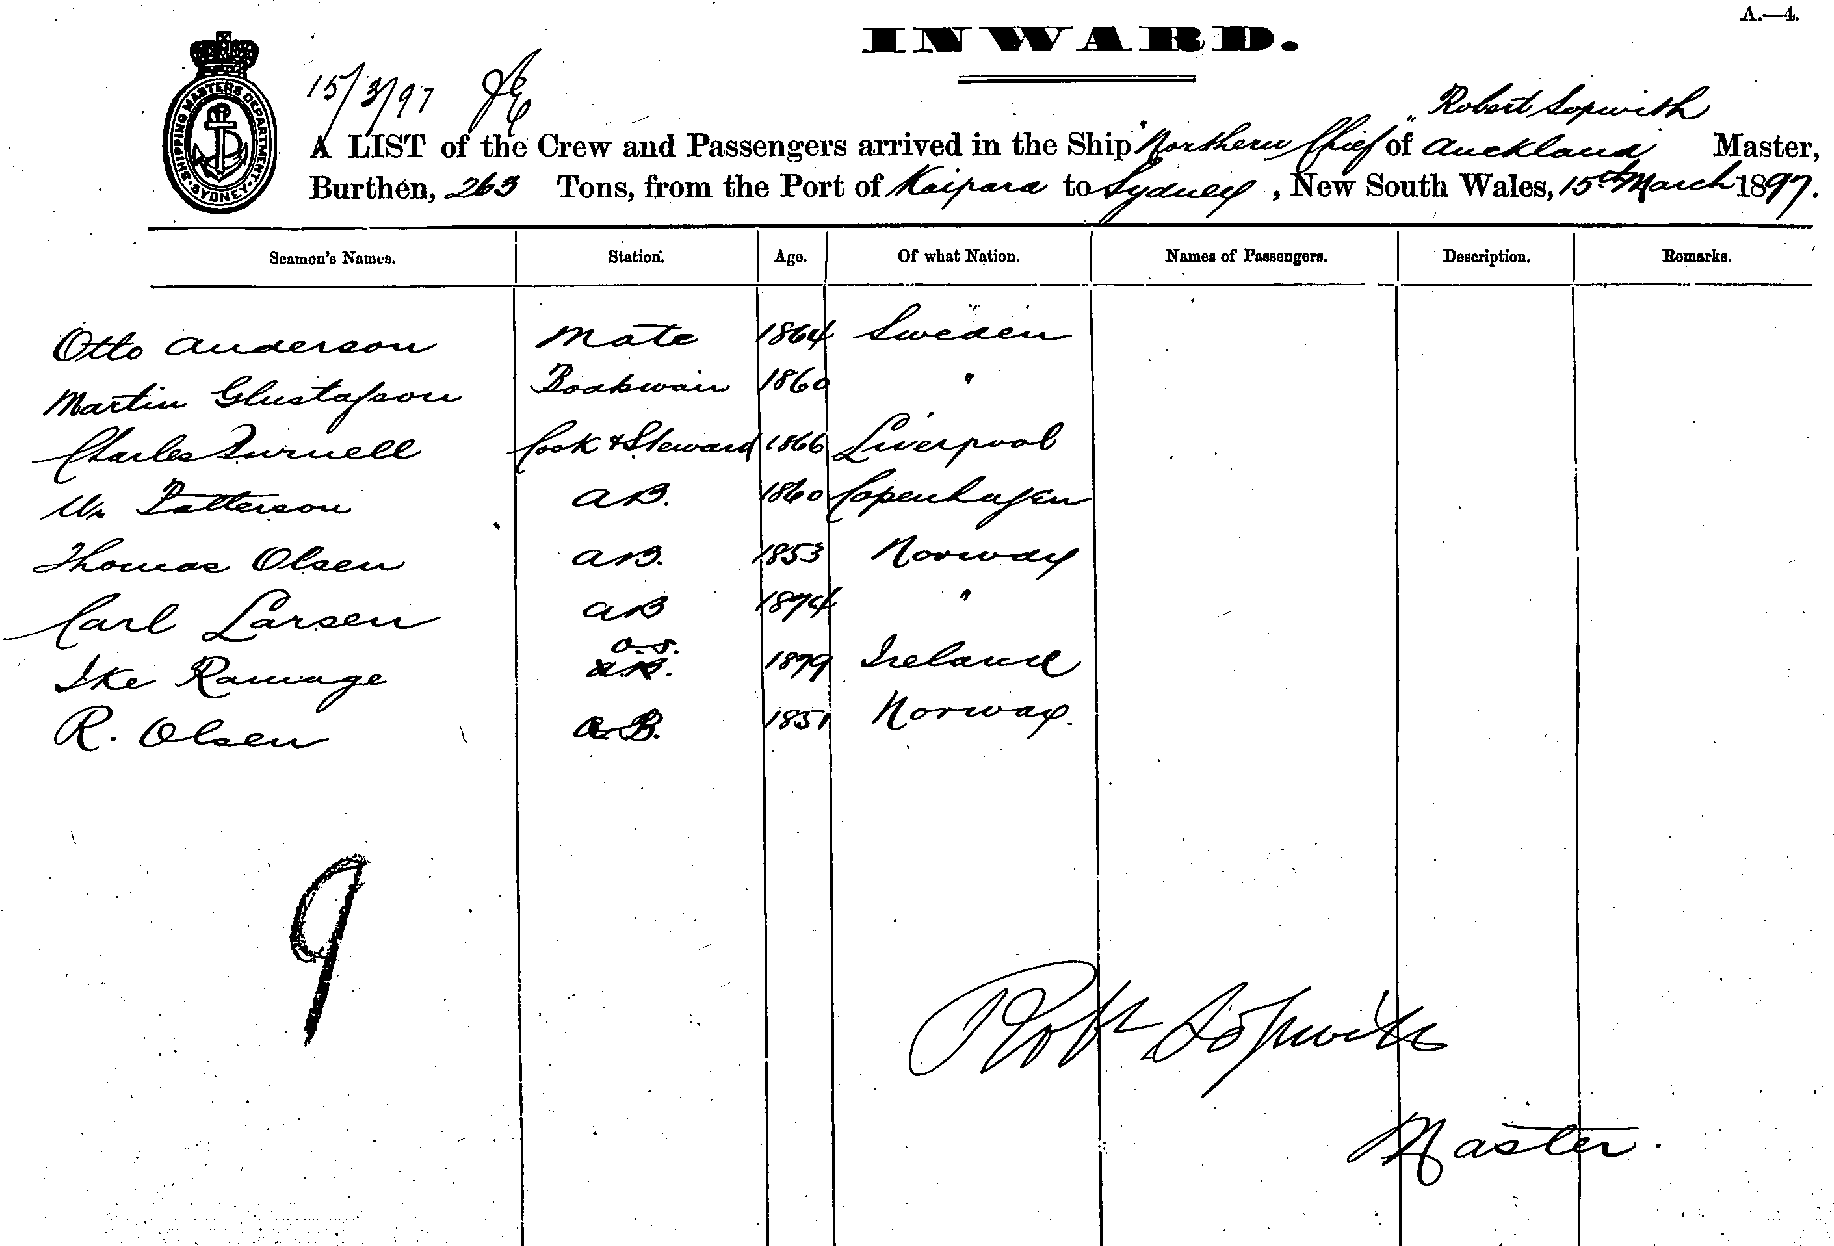 A.—4.
INWARD.
SHIPPING MASTERS DEPARTMENT. SYDNEY.
15/3/97 JE
Robert Sopwith
A LIST of the Crew and Passengers arrived in the Ship "Northern Chief" of Auckland Master,
Burthen, 263 Tons, from the Port of Kaipara to Sydney, New South Wales, 15th March 1897.
Seamen's Names. Station. Age. Of what Nation. Names of Passengers. Description. Remarks.
Otto Anderson Mate 1864 Sweden
Martin Glustafson Boatswain 1860 "
Charles Furnell Cook & Steward 1866 Liverpool
Wm Patterson AB. 1860 Copenhagen
Thomas Olsen AB. 1853 Norway
Carl Larsen AB 1874 "
O.S.
Ike Ramage AB. 1879 Ireland
R. Olsen AB. 1851 Norway.
9
Robt Sopwith
Master.